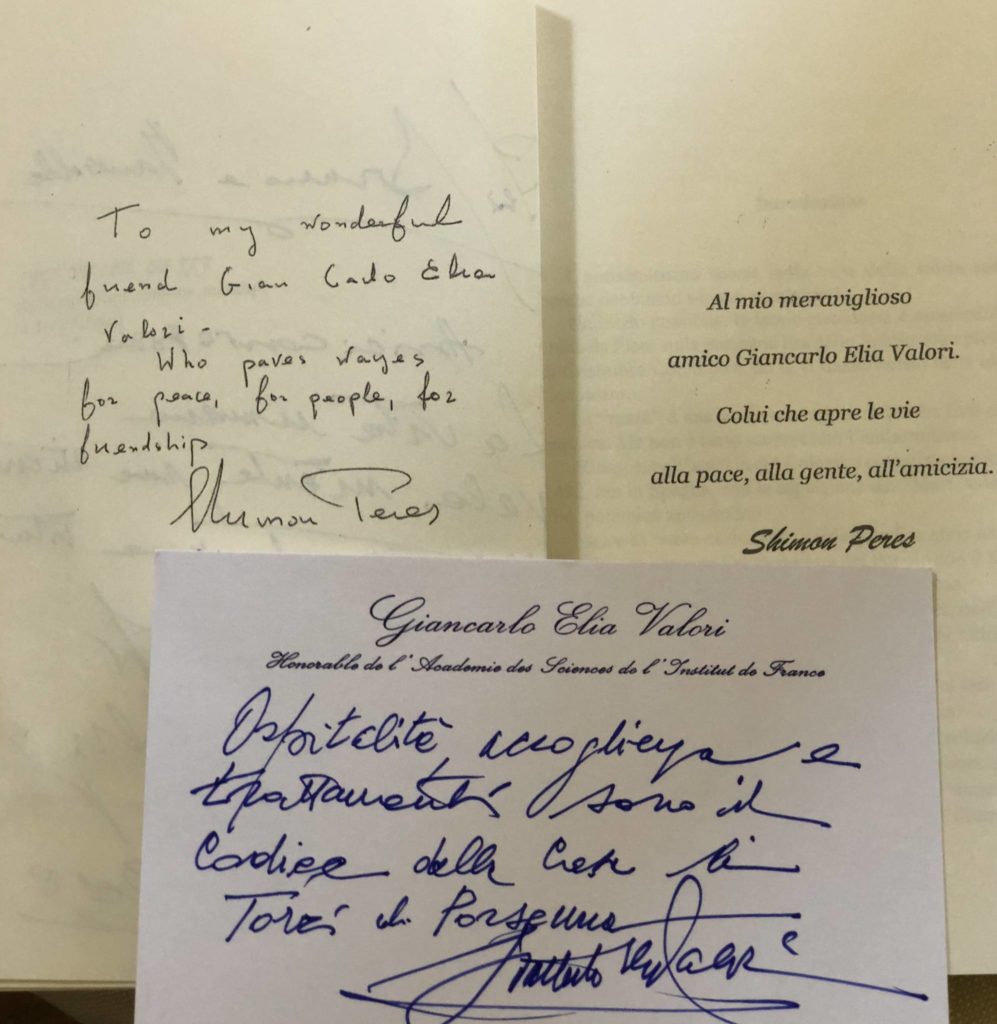 To my wonderful
friend Gian Carlo Elia
Valori -
Who paves wayes
for peace, for people, for
friendship
Shimon Peres
Al mio meraviglioso
amico Giancarlo Elia Valori.
Colui che apre le vie
alla pace, alla gente, all'amicizia.
Shimon Peres
Giancarlo Elia Valori
Honorable de l'Academie des Sciences de l'Institut de France
Ospitalità, accoglienza e
trattamenti sono il
Codice della Casa
di Porsenna